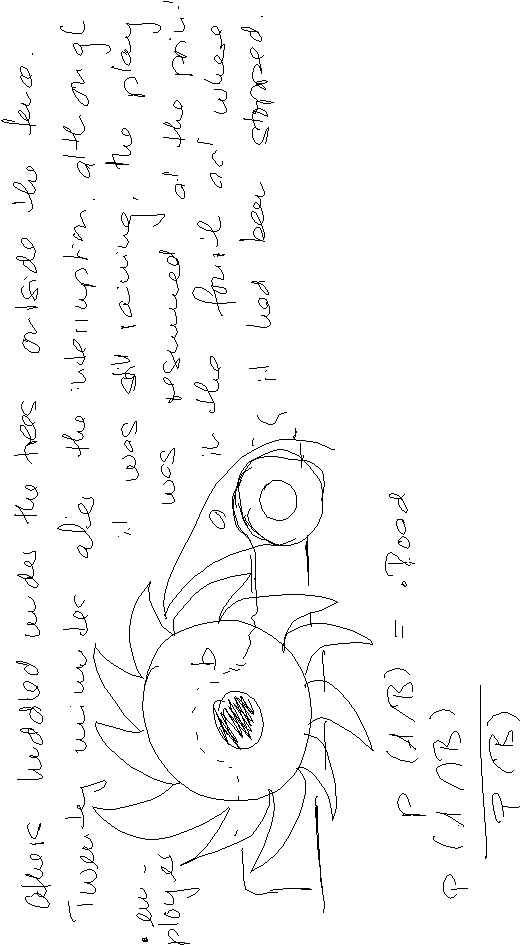 others huddled under the trees outside the fence.
Twenty minutes after the interruption, although
it was still raining, the play
was resumed at the point
in the fonit at where
it had been stopped.
en-
ployes
b
P (A/B) =
P (A ∩ B)
P (B)